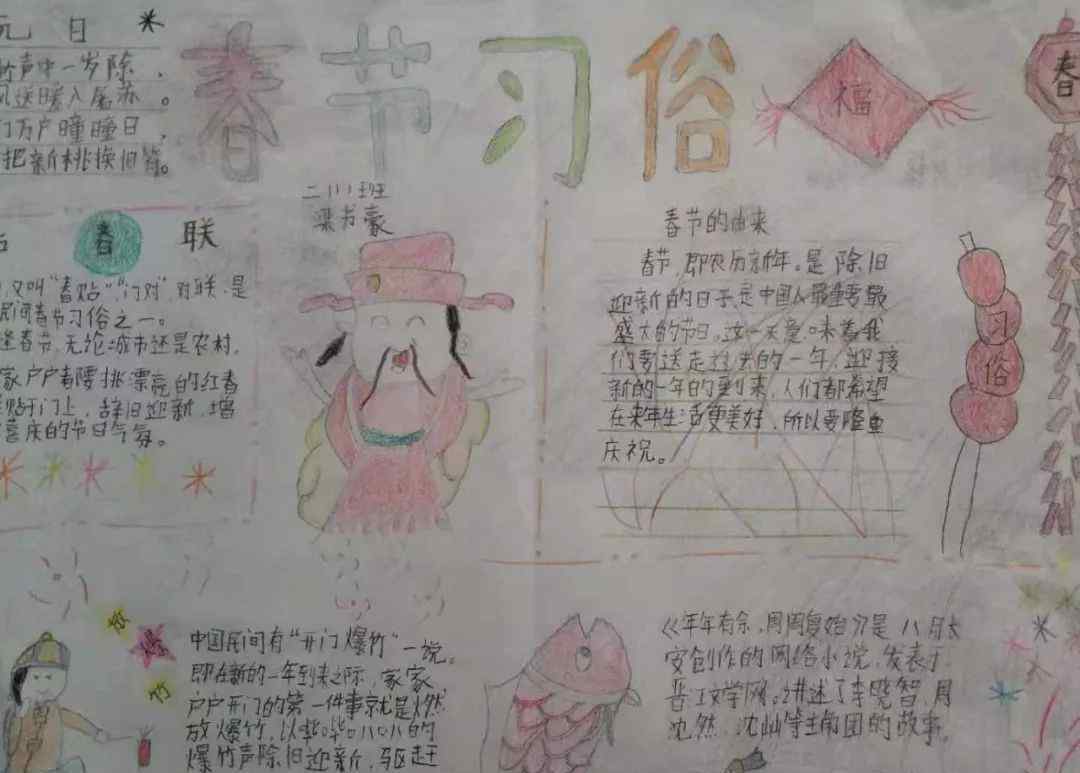 元日
竹声中一岁除，
风送暖入屠苏。
门万户曈曈日，
把新桃换旧符。
春节习俗
福
春
二111班
梁书豪
春联
又叫"春贴""门对"对联，是
民间春节习俗之一。
逢春节，无论城市还是农村，
家户户都要挑漂亮的红春
贴于门上，辞旧迎新，增
喜庆的节日气氛。
春节的由来
春节，即农历新年。是除旧
迎新的日子，是中国人最重要最
盛大的节日。这一天意味着我
们要送走过去的一年，迎接
新的一年的到来，人们都希望
在来年生活更美好，所以要隆重
庆祝。
习俗
放爆竹
中国民间有"开门爆竹"一说。
即在新的一年到来之际，家家
户户开门的第一件事就是燃
放爆竹，以哔哔叭叭的
爆竹声除旧迎新，驱赶
《年年有余，周周复始》是八月长
安创作的网络小说，发表于
晋江文学网。讲述了李晓智，周
沈然，沈屾等主角团的故事。